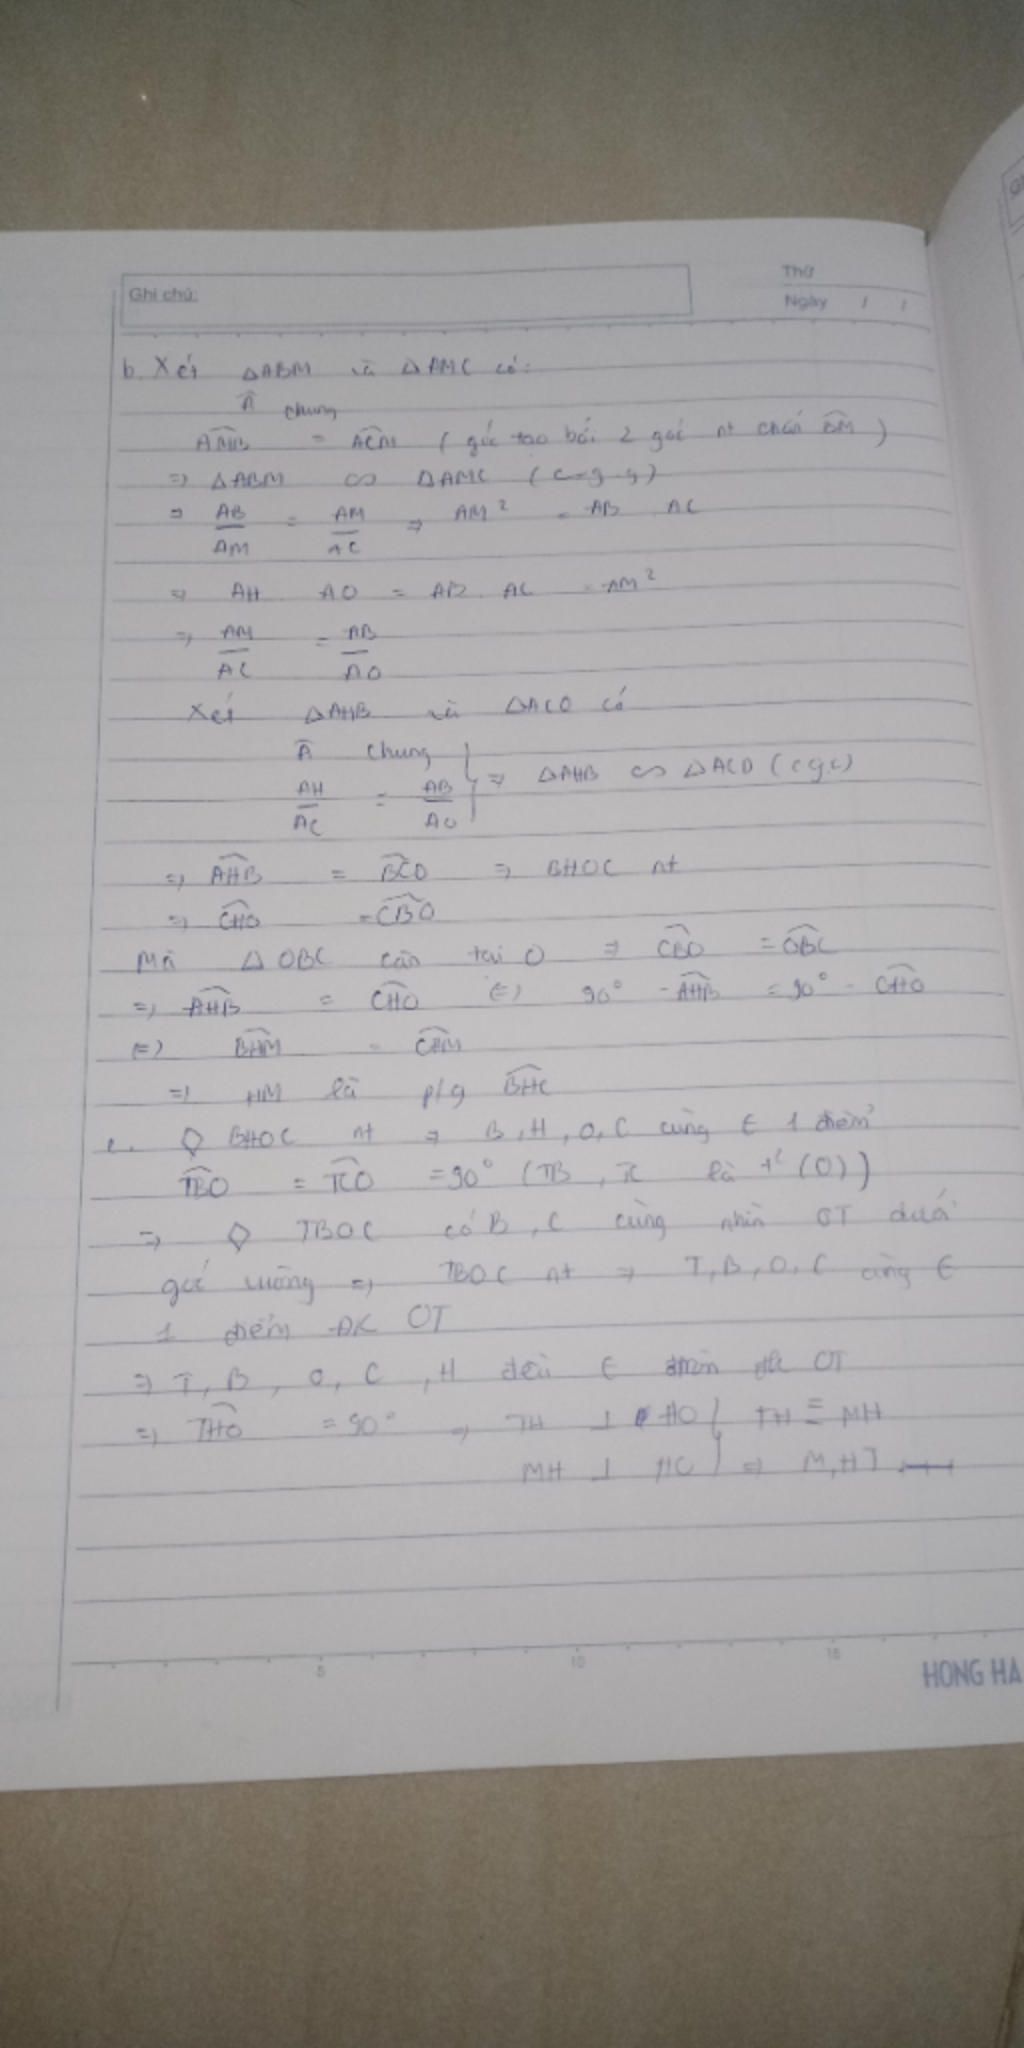 Ghi chú:
Thứ
Ngày / /
b. Xét △ABM và △AMC có:
Â chung
AMB = ACM (góc tạo bởi 2 góc nt chắn BM)
=> △ABM ∽ △AMC (c-g-g)
=> AB/AM = AM/AC => AM² = AB . AC
=> AH . AO = AB . AC = AM²
=> AM/AC = AB/AO
Xét △AHB và △ACO có
Â chung
AH/AC = AB/AO } => △AHB ∽ △ACO (cgc)
=> AHB = BCO => BHOC nt
=> CHO = CBO
Mà △OBC cân tại O => CBO = OBC
=> AHB = CHO (=) 90° - AHB = 90° - CHO
(=) BHM = CHM
=> HM là p/g BHC
c. ◇ BHOC nt => B, H, O, C cùng ∈ 1 điểm
TBO = TCO = 90° (TB, TC là t² (O))
=> ◇ TBOC có B, C cùng nhìn OT dưới
góc vuông => TBOC nt => T, B, O, C cùng ∈
1 điểm ĐK OT
=> T, B, O, C, H đều ∈ OT
=> THO = 90° => TH ⊥ HO } TH ≡ MH
MH ⊥ HO } => M, H T
5 10 15
HONG HA